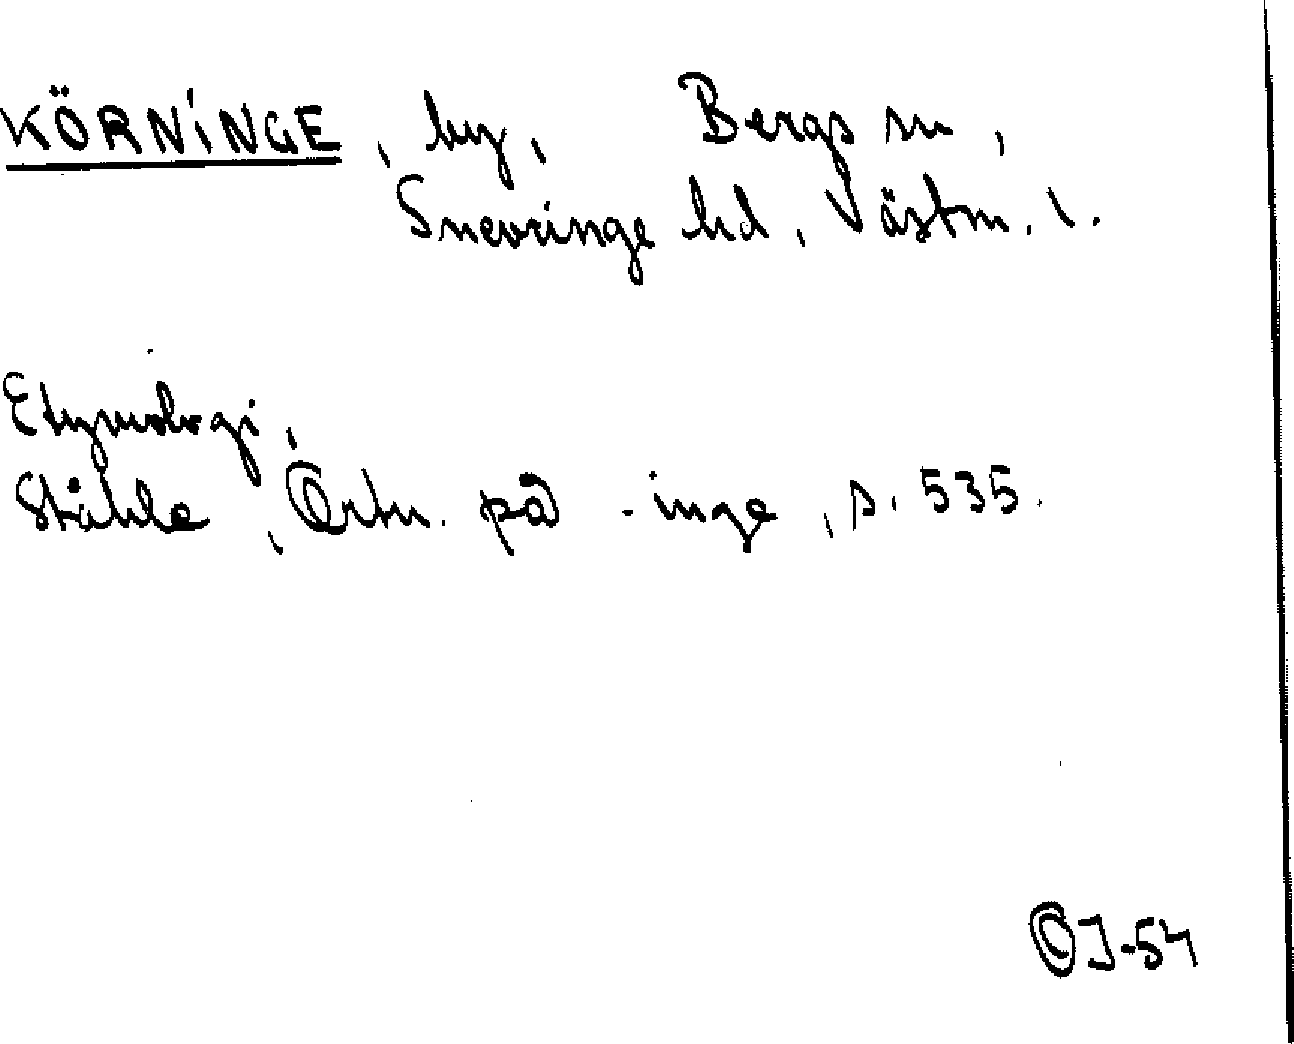 KÖRNINGE, by, Bergs sn,
Snevringe hd, Västm. l.
Etymologi,
Ståhle, Ortn. på -inge, s. 535.
OJ-54